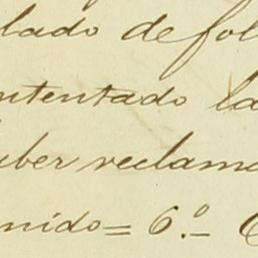 lado de fol
ntentado la
uber reclama
nido = 6.º